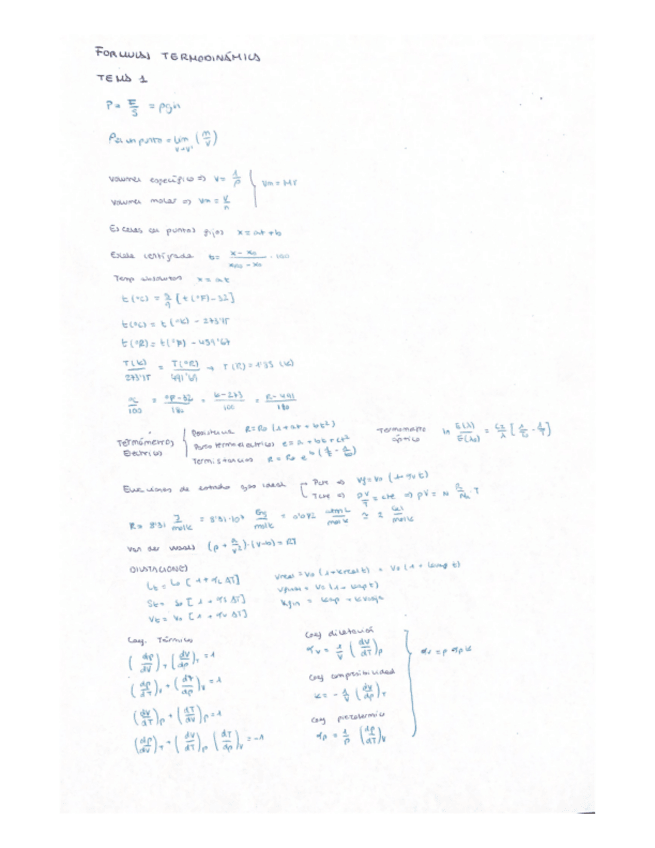 FORMULAS TERMODINÁMICA
TEMA 1
P = F/S = ρgh
ρ en un punto = lim v→v' (m/v)
Volumen específico ⇒ v = 1/ρ
Volumen molar ⇒ Vm = V/n } Vm = Mv
Escalas con puntos fijos x = at + b
Escala centígrada t = (x - x0)/(x100 - x0) · 100
Temp absolutas x = at
t(°C) = 5/9 [t(°F) - 32]
t(°C) = t(°K) - 273'15
t(°F) = t(°R) - 459'67
T(K)/273'15 = T(°R)/491'67 → T(R) = 1'8 (K)
°C/100 = (°F-32)/180 = (K-273)/100 = (R-491)/180
Termómetros Eléctricos { Resistencia R = R0 (1 + at + bt²)
Pares termoeléctricos ε = a + bt + ct²
Termistancias R = R0 e^b(1/T - 1/T0)
Termómetro óptico ln E(λ)/E(λ0) = C2/λ [1/T0 - 1/T]
Ecuaciones de estado gas ideal
P cte ⇒ Vf = V0 (1 + αv t)
T cte ⇒ PV/T = cte ⇒ PV = N R/NA T
R = 8'31 J/molK = 8'31·10⁷ Erg/molK = 0'082 atm L/mol K ≃ 2 cal/molK
Van der Waals (p + a/v²)·(v-b) = RT
DILATACIONES
Lt = L0 [1 + αL ΔT]
St = S0 [1 + αS ΔT]
Vt = V0 [1 + αV ΔT]
Coef. Térmicos
(dp/dV)T · (dV/dp)T = 1
(dp/dT)V · (dT/dp)V = 1
(dV/dT)p · (dT/dV)p = 1
(dp/dV)T · (dV/dT)p (dT/dp)V = -1
Coef dilatación
αV = 1/V (dV/dT)p
Coef compresibilidad
κ = - 1/V (dV/dp)T
Coef piezotérmico
αp = 1/p (dp/dT)V
αv = p αp κ